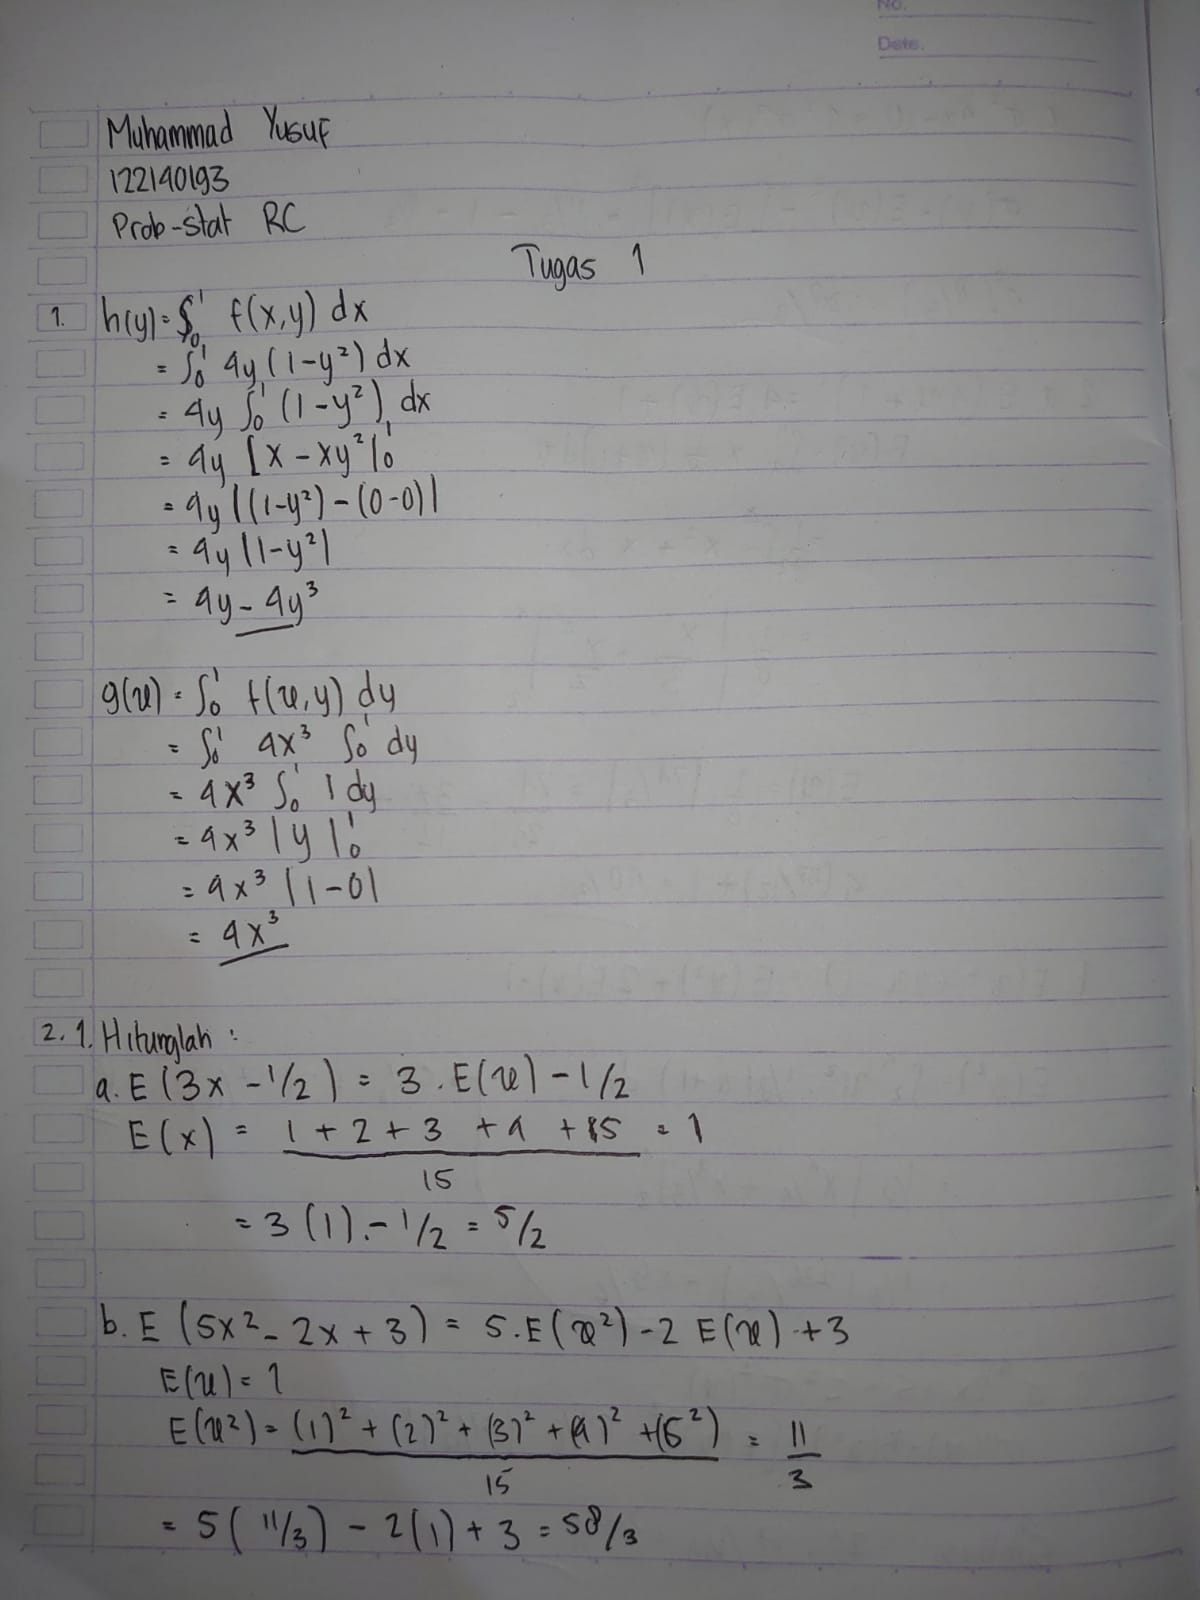 No.
Date.
Muhammad Yusuf
122140193
Prob-stat RC
Tugas 1
1. h(y) = ∫₀¹ f(x,y) dx
= ∫₀¹ 4y (1-y²) dx
= 4y ∫₀¹ (1-y²) dx
= 4y [x - xy²|₀¹
= 4y |(1-y²) - (0-0)|
= 4y |1-y²|
= 4y - 4y³
g(x) = ∫₀¹ f(x,y) dy
= ∫₀¹ 4x³ ∫₀¹ dy
= 4x³ ∫₀¹ 1 dy
= 4x³ |y|₀¹
= 4x³ |1-0|
= 4x³
2. 1. Hitunglah :
a. E (3x - 1/2) = 3 . E(x) - 1/2
E(x) = 1 + 2 + 3 + 4 + 5 = 1
15
= 3 (1) - 1/2 = 5/2
b. E (5x² - 2x + 3) = 5.E(x²) - 2 E(x) + 3
E(x) = 1
E(x²) = (1)² + (2)² + (3)² + (4)² + (5²) = 11
15 3
= 5( 11/3) - 2(1) + 3 = 58/3